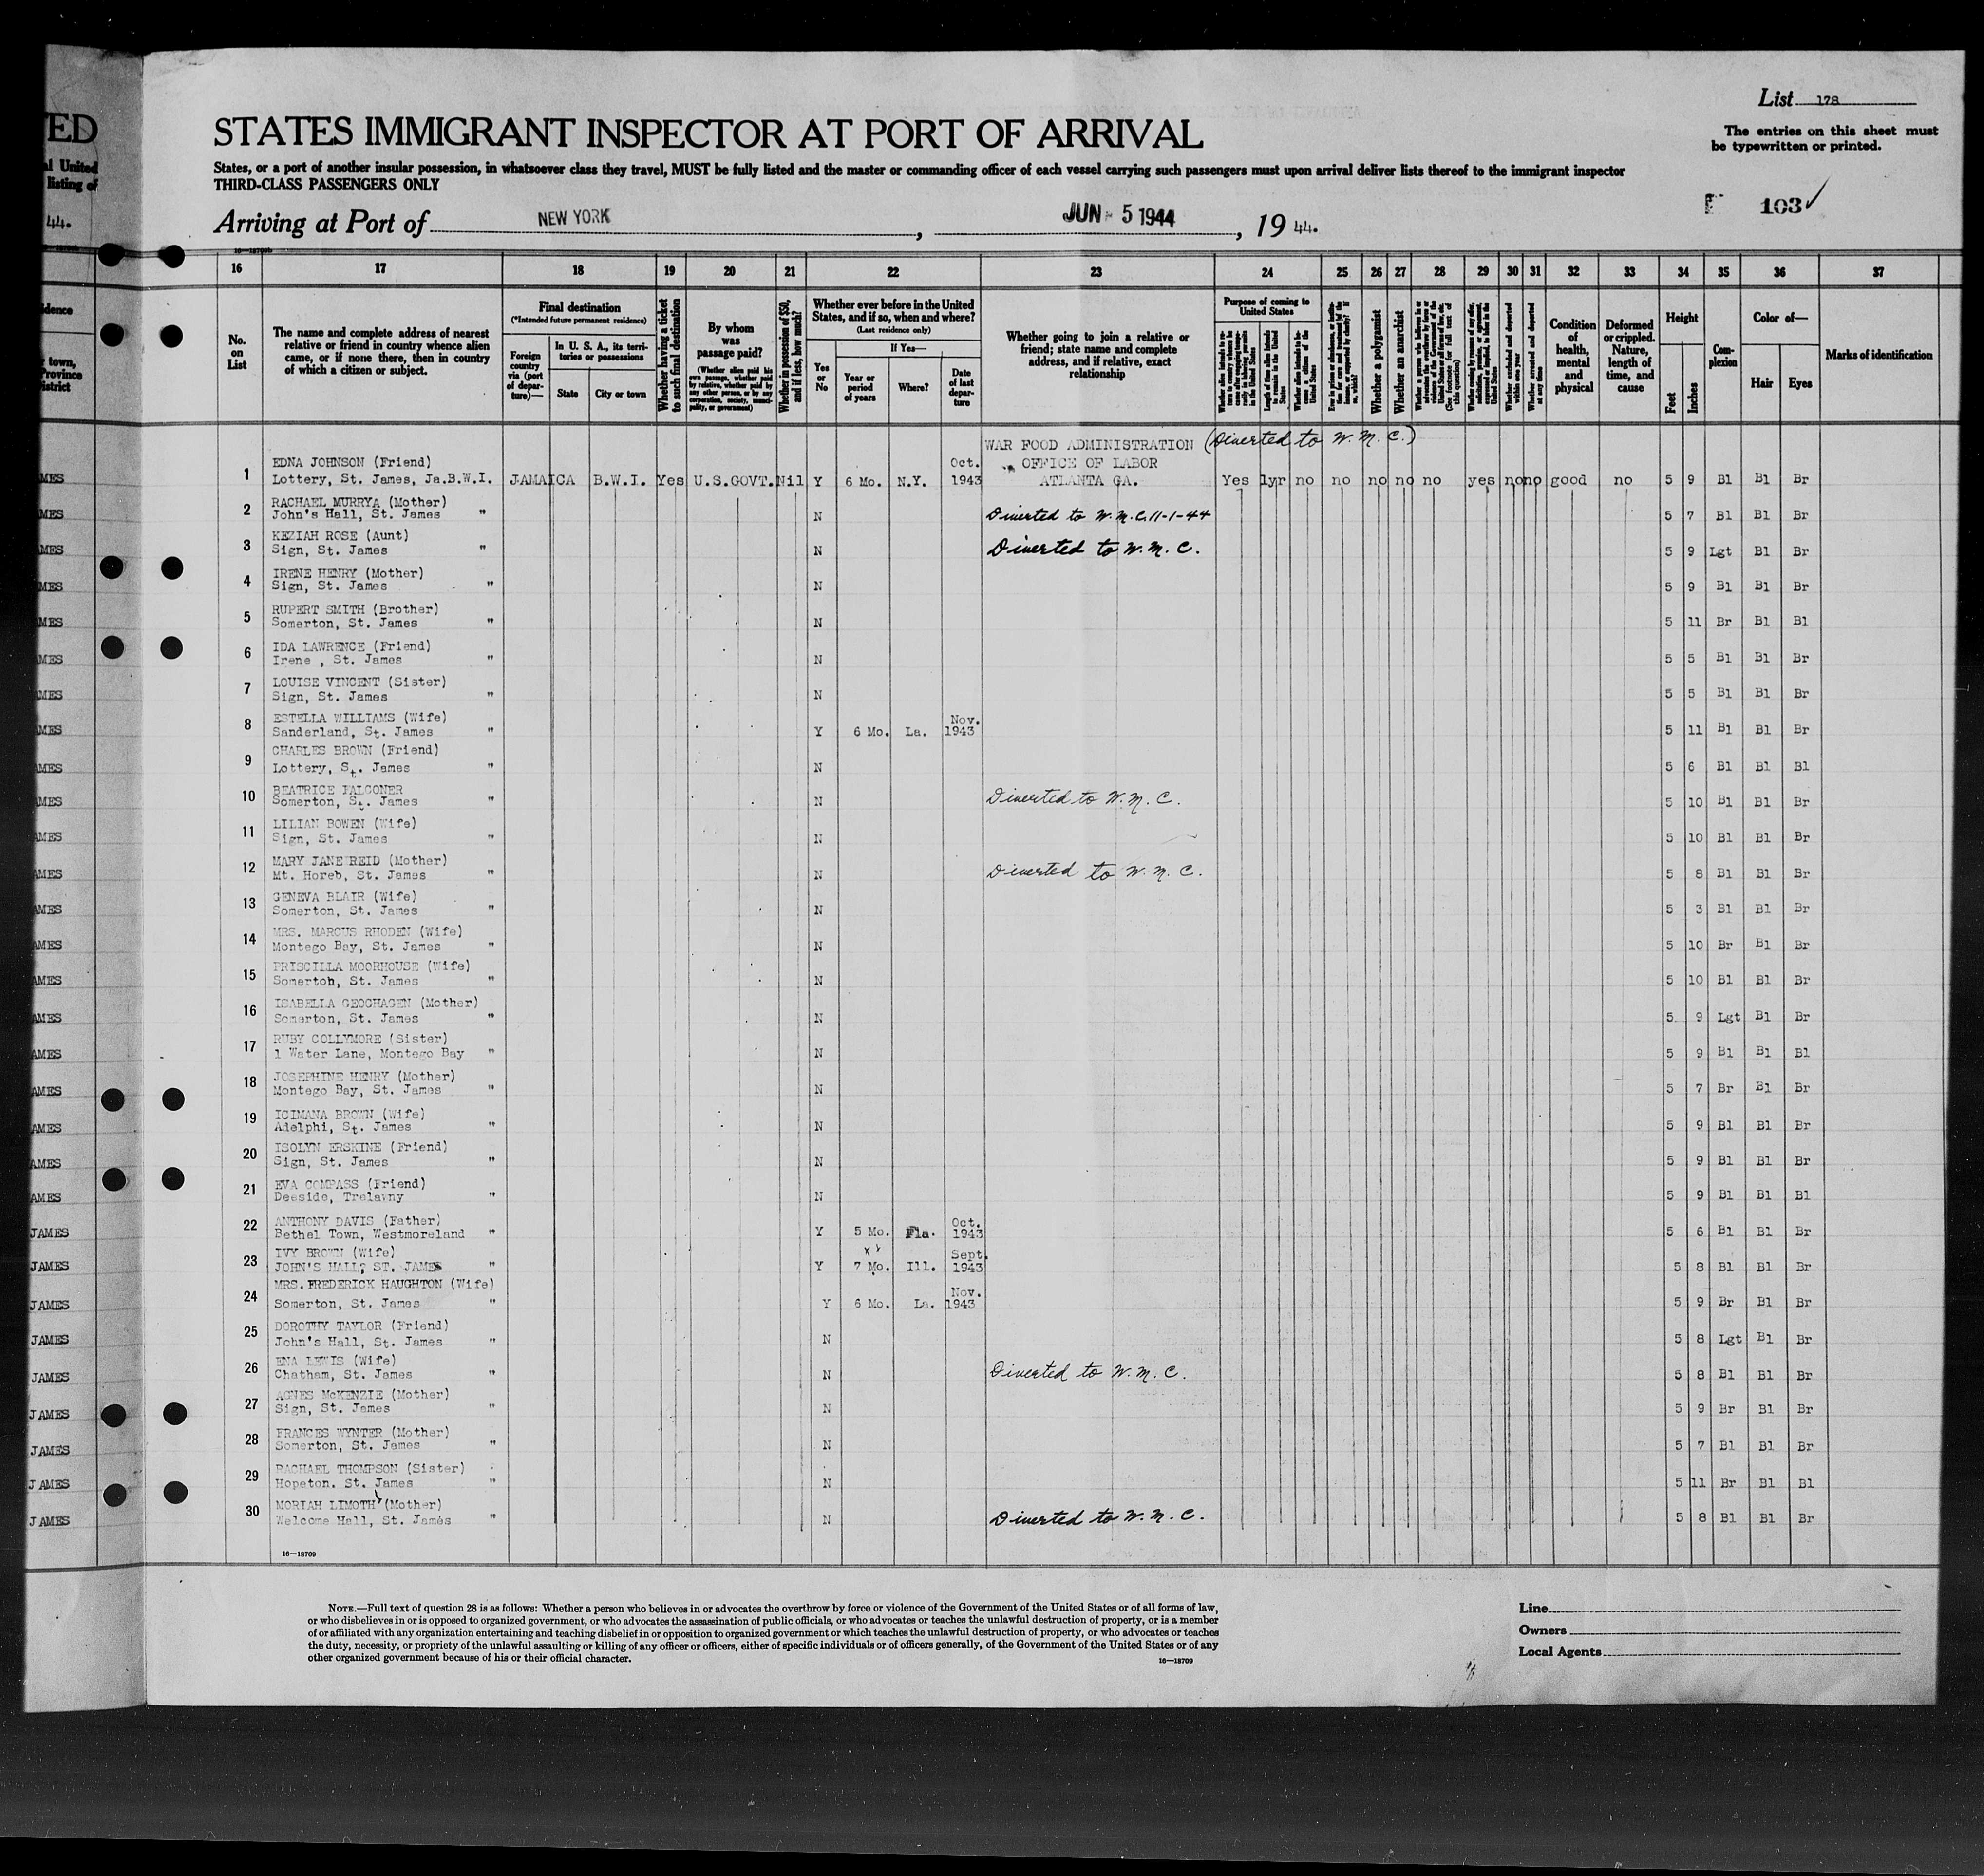 TED
al United
listing of
44.
List 178
The entries on this sheet must
be typewritten or printed.
STATES IMMIGRANT INSPECTOR AT PORT OF ARRIVAL
States, or a port of another insular possession, in whatsoever class they travel, MUST be fully listed and the master or commanding officer of each vessel carrying such passengers must upon arrival deliver lists thereof to the immigrant inspector
THIRD-CLASS PASSENGERS ONLY
103✓
Arriving at Port of NEW YORK, JUN - 5 1944, 19 44.
16 17 18 19 20 21 22 23 24 25 26 27 28 29 30 31 32 33 34 35 36 37
No. on List
The name and complete address of nearest relative or friend in country whence alien came, or if none there, then in country of which a citizen or subject.
Final destination
(*Intended future permanent residence)
Foreign country via (port of departure)—
In U. S. A., its territories or possessions
State
City or town
Whether having a ticket to such final destination
By whom was passage paid?
(Whether alien paid his own passage, whether paid by relative, whether paid by any other person, or by any corporation, society, municipality, or government)
Whether in possession of $50, and if less, how much?
Whether ever before in the United States, and if so, when and where?
(Last residence only)
Yes or No
If Yes—
Year or period of years
Where?
Date of last departure
Whether going to join a relative or friend; state name and complete address, and if relative, exact relationship
Purpose of coming to United States
Length of time alien intends to remain in the United States
Whether alien intends to become a citizen of the United States
Whether a polygamist
Whether an anarchist
(See footnote for full text of this question)
Whether excluded and deported within one year
Whether arrested and deported at any time
Condition of health, mental and physical
Deformed or crippled. Nature, length of time, and cause
Height
Feet
Inches
Complexion
Color of—
Hair
Eyes
Marks of identification
WAR FOOD ADMINISTRATION (Diverted to W. M. C.)
1 EDNA JOHNSON (Friend) Oct. OFFICE OF LABOR
Lottery, St. James, Ja.B.W.I. JAMAICA B.W.I. Yes U.S.GOVT. Nil Y 6 Mo. N.Y. 1943 ATLANTA GA. Yes 1yr no no no no no yes no no good no 5 9 Bl Bl Br
2 RACHAEL MURRYA (Mother)
John's Hall, St. James " N Diverted to W.M.C. 11-1-44 5 7 Bl Bl Br
3 KEZIAH ROSE (Aunt)
Sign, St. James " N Diverted to W. M. C. 5 9 Lgt Bl Br
4 IRENE HENRY (Mother)
Sign, St. James " N 5 9 Bl Bl Br
5 RUPERT SMITH (Brother)
Somerton, St. James " N 5 11 Br Bl Bl
6 IDA LAWRENCE (Friend)
Irene , St. James " N 5 5 Bl Bl Br
7 LOUISE VINCENT (Sister)
Sign, St. James " N 5 5 Bl Bl Br
8 ESTELLA WILLIAMS (Wife) Nov.
Sanderland, St. James " Y 6 Mo. La. 1943 5 11 Bl Bl Br
9 CHARLES BROWN (Friend)
Lottery, St. James " N 5 6 Bl Bl Bl
10 BEATRICE FALCONER
Somerton, St. James " N Diverted to W. M. C. 5 10 Bl Bl Br
11 LILIAN BOWEN (Wife)
Sign, St. James " N 5 10 Bl Bl Br
12 MARY JANE REID (Mother)
Mt. Horeb, St. James " N Diverted to W. M. C. 5 8 Bl Bl Br
13 GENEVA BLAIR (Wife)
Somerton, St. James " N 5 3 Bl Bl Br
14 MRS. MARCUS RHODEN (Wife)
Montego Bay, St. James " N 5 10 Br Bl Br
15 PRISCILLA MOORHOUSE (Wife)
Somertoh, St. James " N 5 10 Bl Bl Br
16 ISABELLA GEOGHAGEN (Mother)
Somerton, St. James " N 5 9 Lgt Bl Br
17 RUBY COLLYMORE (Sister)
1 Water Lane, Montego Bay " N 5 9 Bl Bl Bl
18 JOSEPHINE HENRY (Mother)
Montego Bay, St. James " N 5 7 Br Bl Br
19 ICIMANA BROWN (Wife)
Adelphi, St. James " N 5 9 Bl Bl Br
20 ISOLYN ERSKINE (Friend)
Sign, St. James " N 5 9 Bl Bl Br
21 EVA COMPASS (Friend)
Deeside, Trelawny " N 5 9 Bl Bl Bl
22 ANTHONY DAVIS (Father) Oct.
Bethel Town, Westmoreland " Y 5 Mo. Fla. 1943 5 6 Bl Bl Br
23 IVY BROWN (Wife) Sept.
JOHN'S HALL, ST. JAMES " Y 7 Mo. Ill. 1943 5 8 Bl Bl Br
24 MRS. FREDERICK HAUGHTON (Wife) Nov.
Somerton, St. James " Y 6 Mo. La. 1943 5 9 Br Bl Br
25 DOROTHY TAYLOR (Friend)
John's Hall, St. James " N 5 8 Lgt Bl Br
26 ENA LEWIS (Wife)
Chatham, St. James " N Diverted to W. M. C. 5 8 Bl Bl Br
27 AGNES McKENZIE (Mother)
Sign, St. James " N 5 9 Br Bl Br
28 FRANCES WYNTER (Mother)
Somerton, St. James " N 5 7 Bl Bl Br
29 RACHAEL THOMPSON (Sister)
Hopeton. St. James " N 5 11 Br Bl Bl
30 MORIAH LIMOTH (Mother)
Welcome Hall, St. James " N Diverted to W. M. C. 5 8 Bl Bl Br
16—18709
NOTE.—Full text of question 28 is as follows: Whether a person who believes in or advocates the overthrow by force or violence of the Government of the United States or of all forms of law,
or who disbelieves in or is opposed to organized government, or who advocates the assassination of public officials, or who advocates or teaches the unlawful destruction of property, or is a member
of or affiliated with any organization entertaining and teaching disbelief in or opposition to organized government or which teaches the unlawful destruction of property, or who advocates or teaches
the duty, necessity, or propriety of the unlawful assaulting or killing of any officer or officers, either of specific individuals or of officers generally, of the Government of the United States or of any
other organized government because of his or their official character.
16—18709
Line
Owners
Local Agents